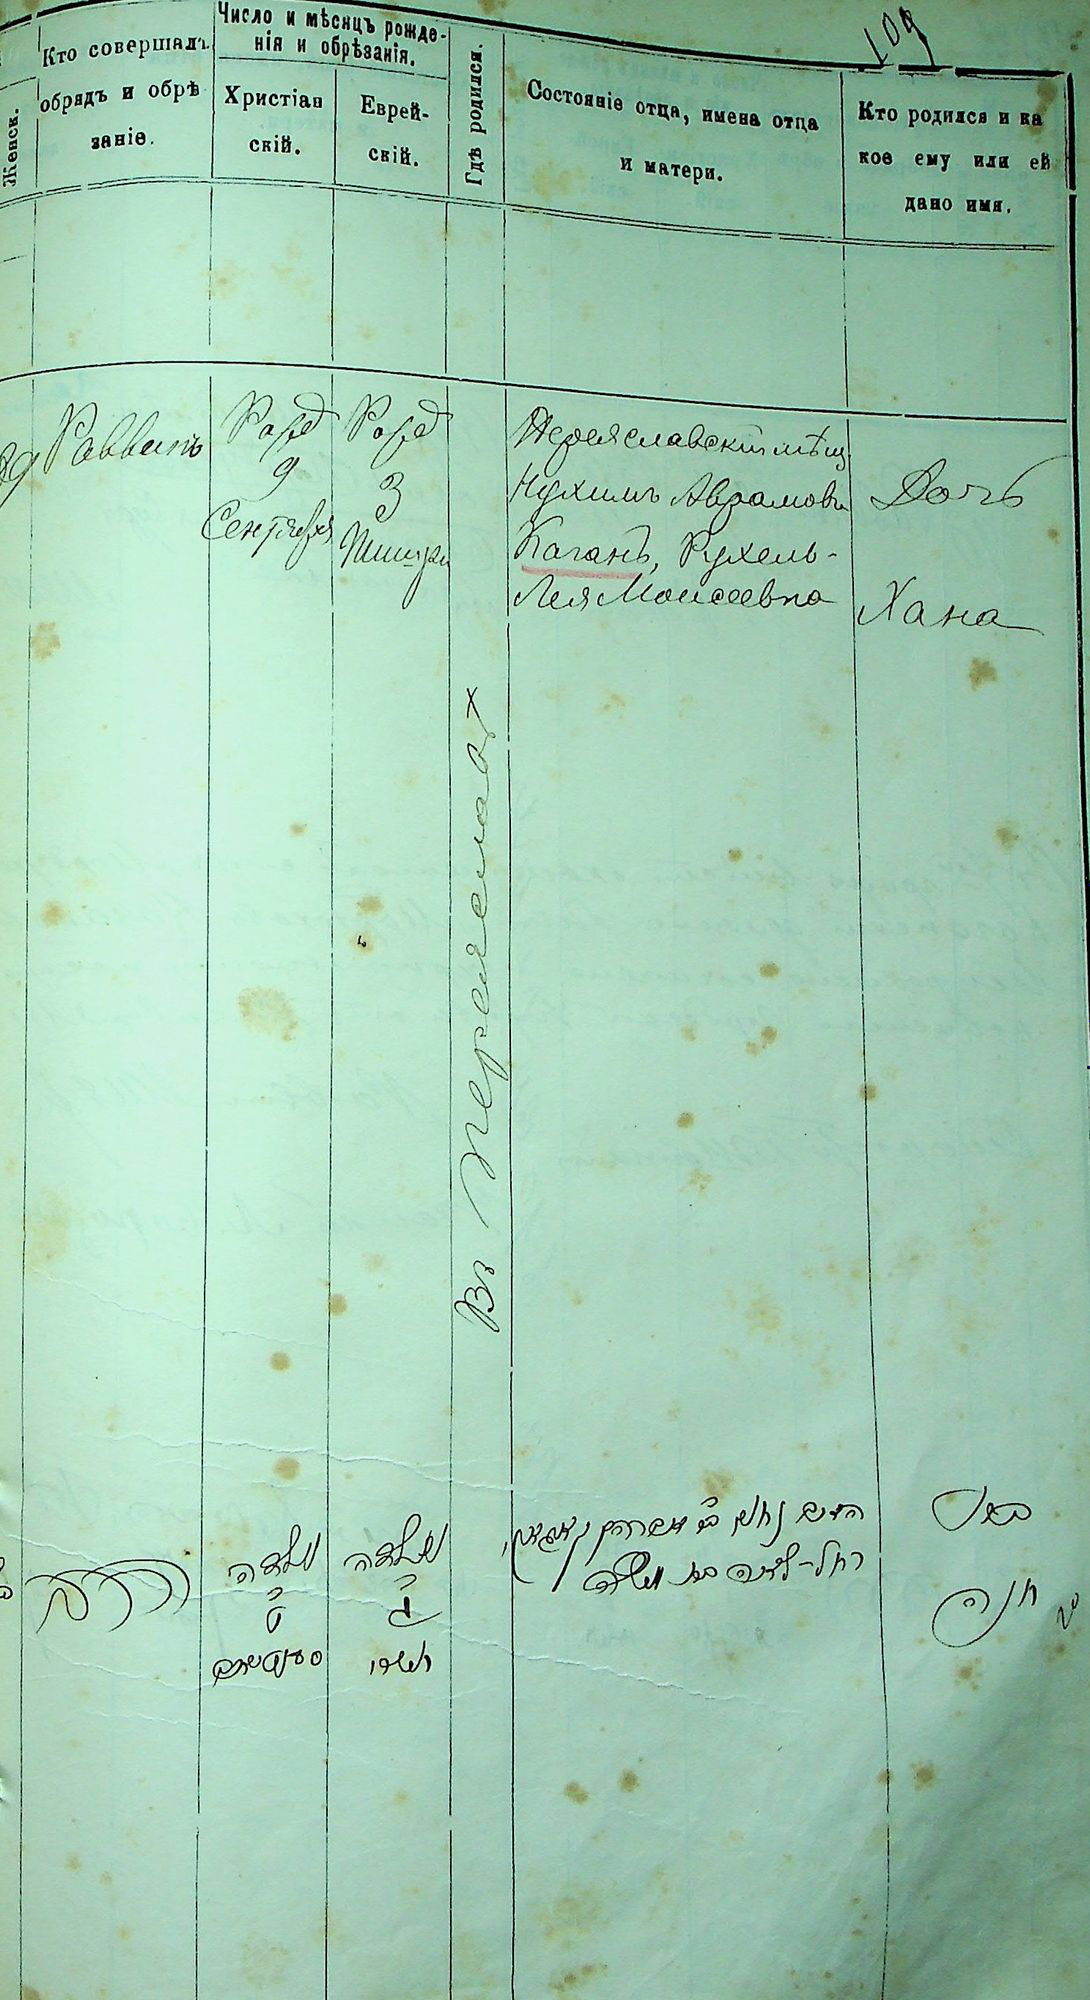 109
Женск.
Кто совершалъ
обрядъ и обрѣ
заніе.
Число и мѣсяцъ рожде-
нія и обрѣзанія.
Христіан
скій.
Еврей-
скій.
Гдѣ родился.
Состояніе отца, имена отца
и матери.
Кто родился и ка
кое ему или ей
дано имя.
89
Раввинъ
Рожд
9
Сентября
Рожд
3
Тишри
Въ Переяславѣ
Переяславскій мѣщ
Нухимъ Аврамовъ
Каганъ, Рухель-
Лея Моисеевна
Дочь
Хана
נולדה
ט
סענטיאבר
נולדה
ג
תשרי
נחום בר אברהם קאגאן,
רחל-לאה בת משה
בת
חנה